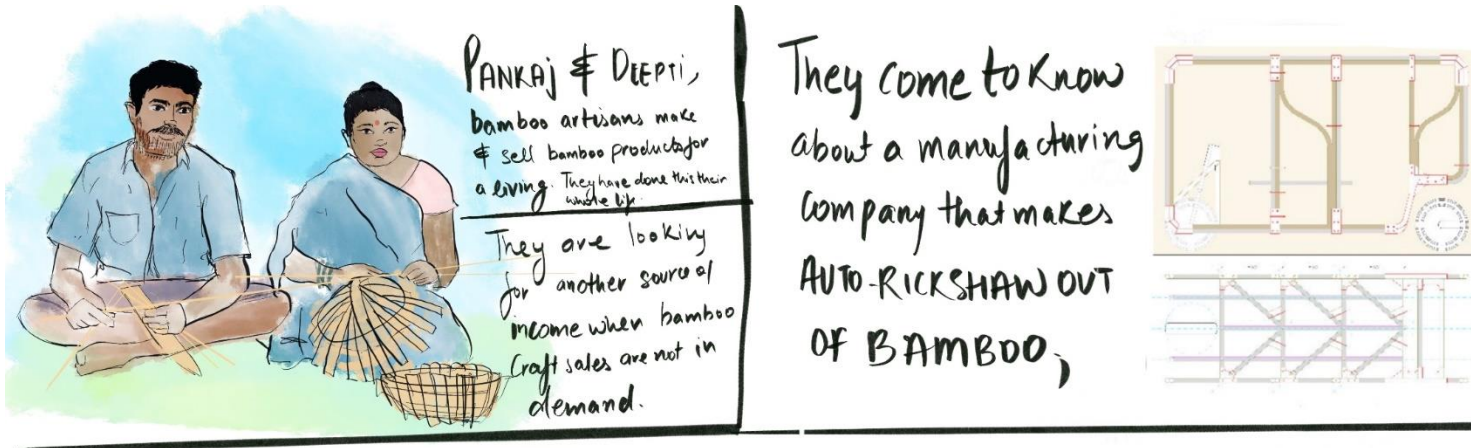 PANKAJ & DEEPTI,
bamboo artisans make
& sell bamboo products for
a living. They have done this their
whole life.
They are looking
for another source of
income when bamboo
Craft sales are not in
demand.
They come to know
about a manufacturing
company that makes
AUTO-RICKSHAW OUT
OF BAMBOO,